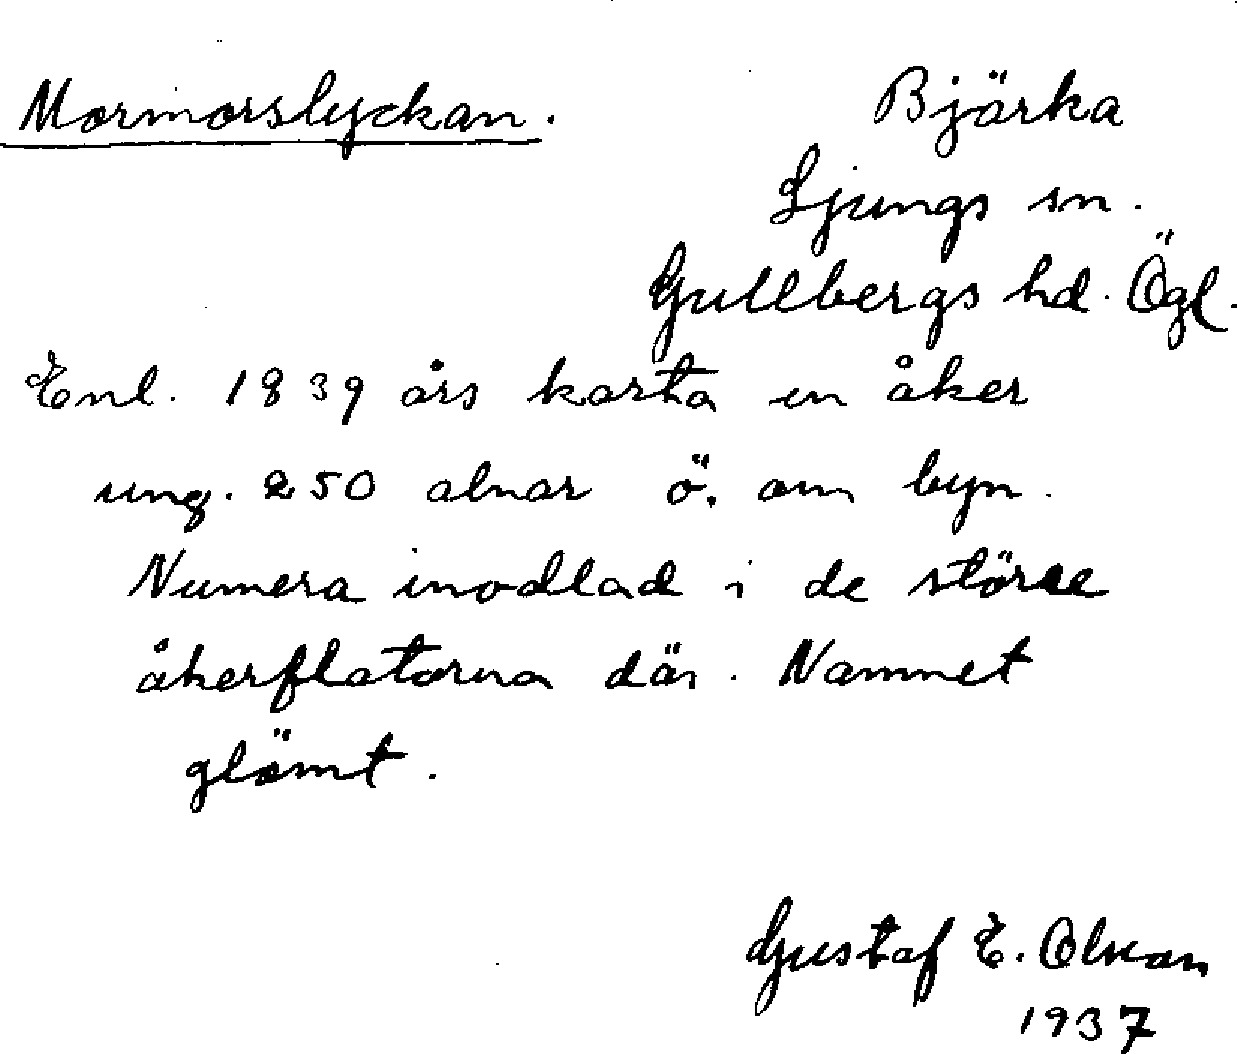 Mormorslyckan.
Bjärka
Ljungs sn.
Gullbergs hd. Ögl.
Enl. 1839 års karta en åker
ung. 250 alnar ö. om byn.
Numera inodlad i de större
åkerflatorna där. Namnet
glömt.
Gustaf E. Olson
1937